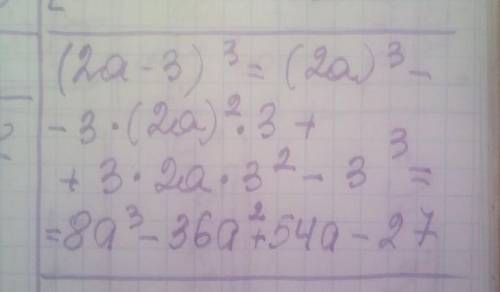 (2a-3)³=(2a)³-
-3·(2a)²·3+
+3·2a·3²-3³=
=8a³-36a²+54a-27